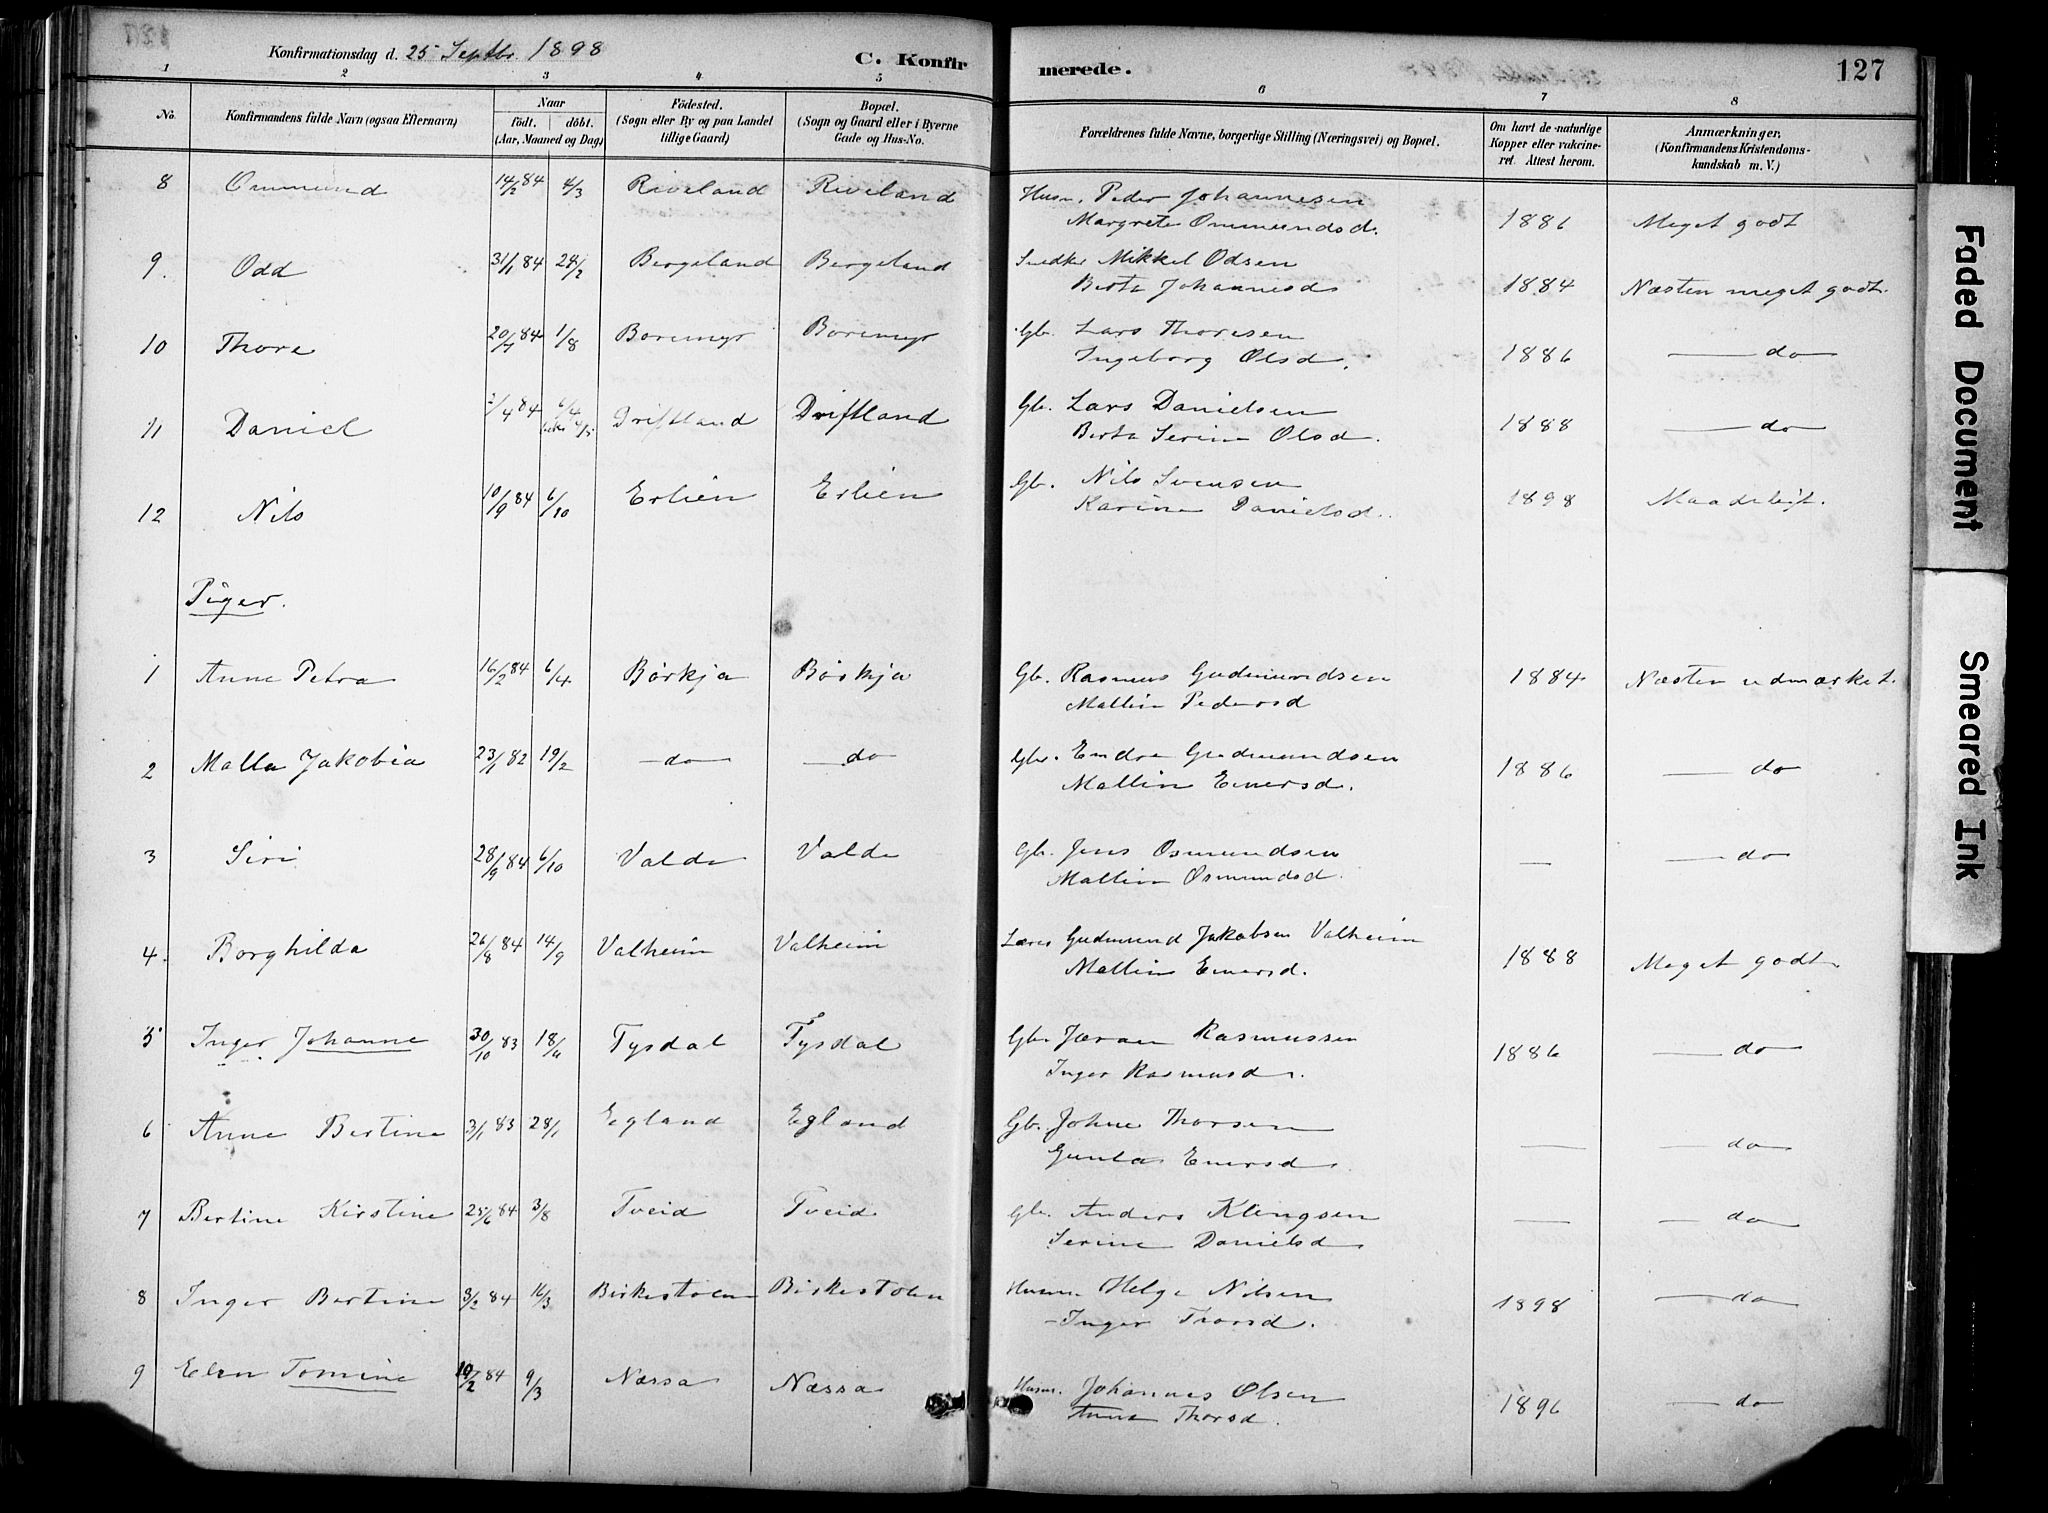 Konfirmationsdag d. 25 Septbr. 1898 C. Konfirmerede. 127
1 2 3 4 5 6 7 8
No. Konfirmandens fulde Navn (ogsaa Efternavn) Naar födt. döbt. (Aar, Maaned og Dag) Födested. (Sogn eller By og paa Landet tillige Gaard) Bopæl. (Sogn og Gaard eller i Byerne Gade og Hus-No. Forældrenes fulde Navne, borgerlige Stilling (Næringsvei) og Bopæl. Om havt de naturlige Kopper eller vakcineret. Attest herom. Anmærkninger. (Konfirmandens Kristendomskundskab m. V.)
8 Ommund 14/2 84 4/3 Riveland Riveland Husm. Peder Johannesen
Margrete Ommundsd. 1886 Meget godt
9. Odd 31/1 84 28/2 Bergeland Bergeland Snedker Mikkel Odsen
Berta Johannesd 1884 Næsten meget godt.
10 Thore 20/7 84 1/8 Boremyr Boremyr Gb. Lars Thoresen
Ingeborg Olsd. 1886 — do
11 Daniel 2/4 84 6/4 4/5 Driftland Driftland Gb. Lars Danielsen
Berta Serine Olsd. 1888 — do
12 Nils 10/9 84 6/10 Erlien Erlien Gb. Nils Svensen
Karine Danielsd. 1898 Maadeligt.
Piger.
1 Anne Petra 16/2 84 6/4 Börkja Börkja Gb. Rasmus Gudmundsen
Mallin Pedersd 1884 Næsten udmærket.
2 Malla Jakobia 23/1 82 19/2 do do Gbr. Endre Gudmundsen
Mallin Enersd. 1886 — do
3 Siri 28/9 84 6/10 Valde Valde Gb. Jens Osmundsen
Mallin Osmundsd. — — do
4. Borghilda 26/8 84 14/9 Valheim Valheim Lærer Gudmund Jakobsen Valheim
Mallin Enersd. 1888 Meget godt.
5 Inger Johanne 30/10 83 18/11 Tysdal Tysdal Gb. Jøraan Rasmussen
Inger Rasmusd. 1886 — do
6 Anne Bertine 3/1 83 28/1 Egland Egland Gb. Johne Thorsen
Enersd. — — do
7 Bertine Kirstine 25/6 84 3/8 Tveid Tveid Gb. Anders Klengsen
Serine Danielsd — — do
8 Inger Bertine 3/2 84 16/3 Birkestølen Birkestølen Husm. Helge Nilsen
Inger Thorsd. 1898 — do
9 Elen Tomine 10/2 84 9/3 Næssa Næssa Husm. Johannes Olsen
Anna Thorsd. 1896 — do
Faded Document
Smeared Ink